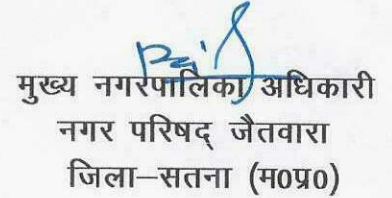 मुख्य नगरपालिका अधिकारी
नगर परिषद् जैतवारा
जिला–सतना (म0प्र0)